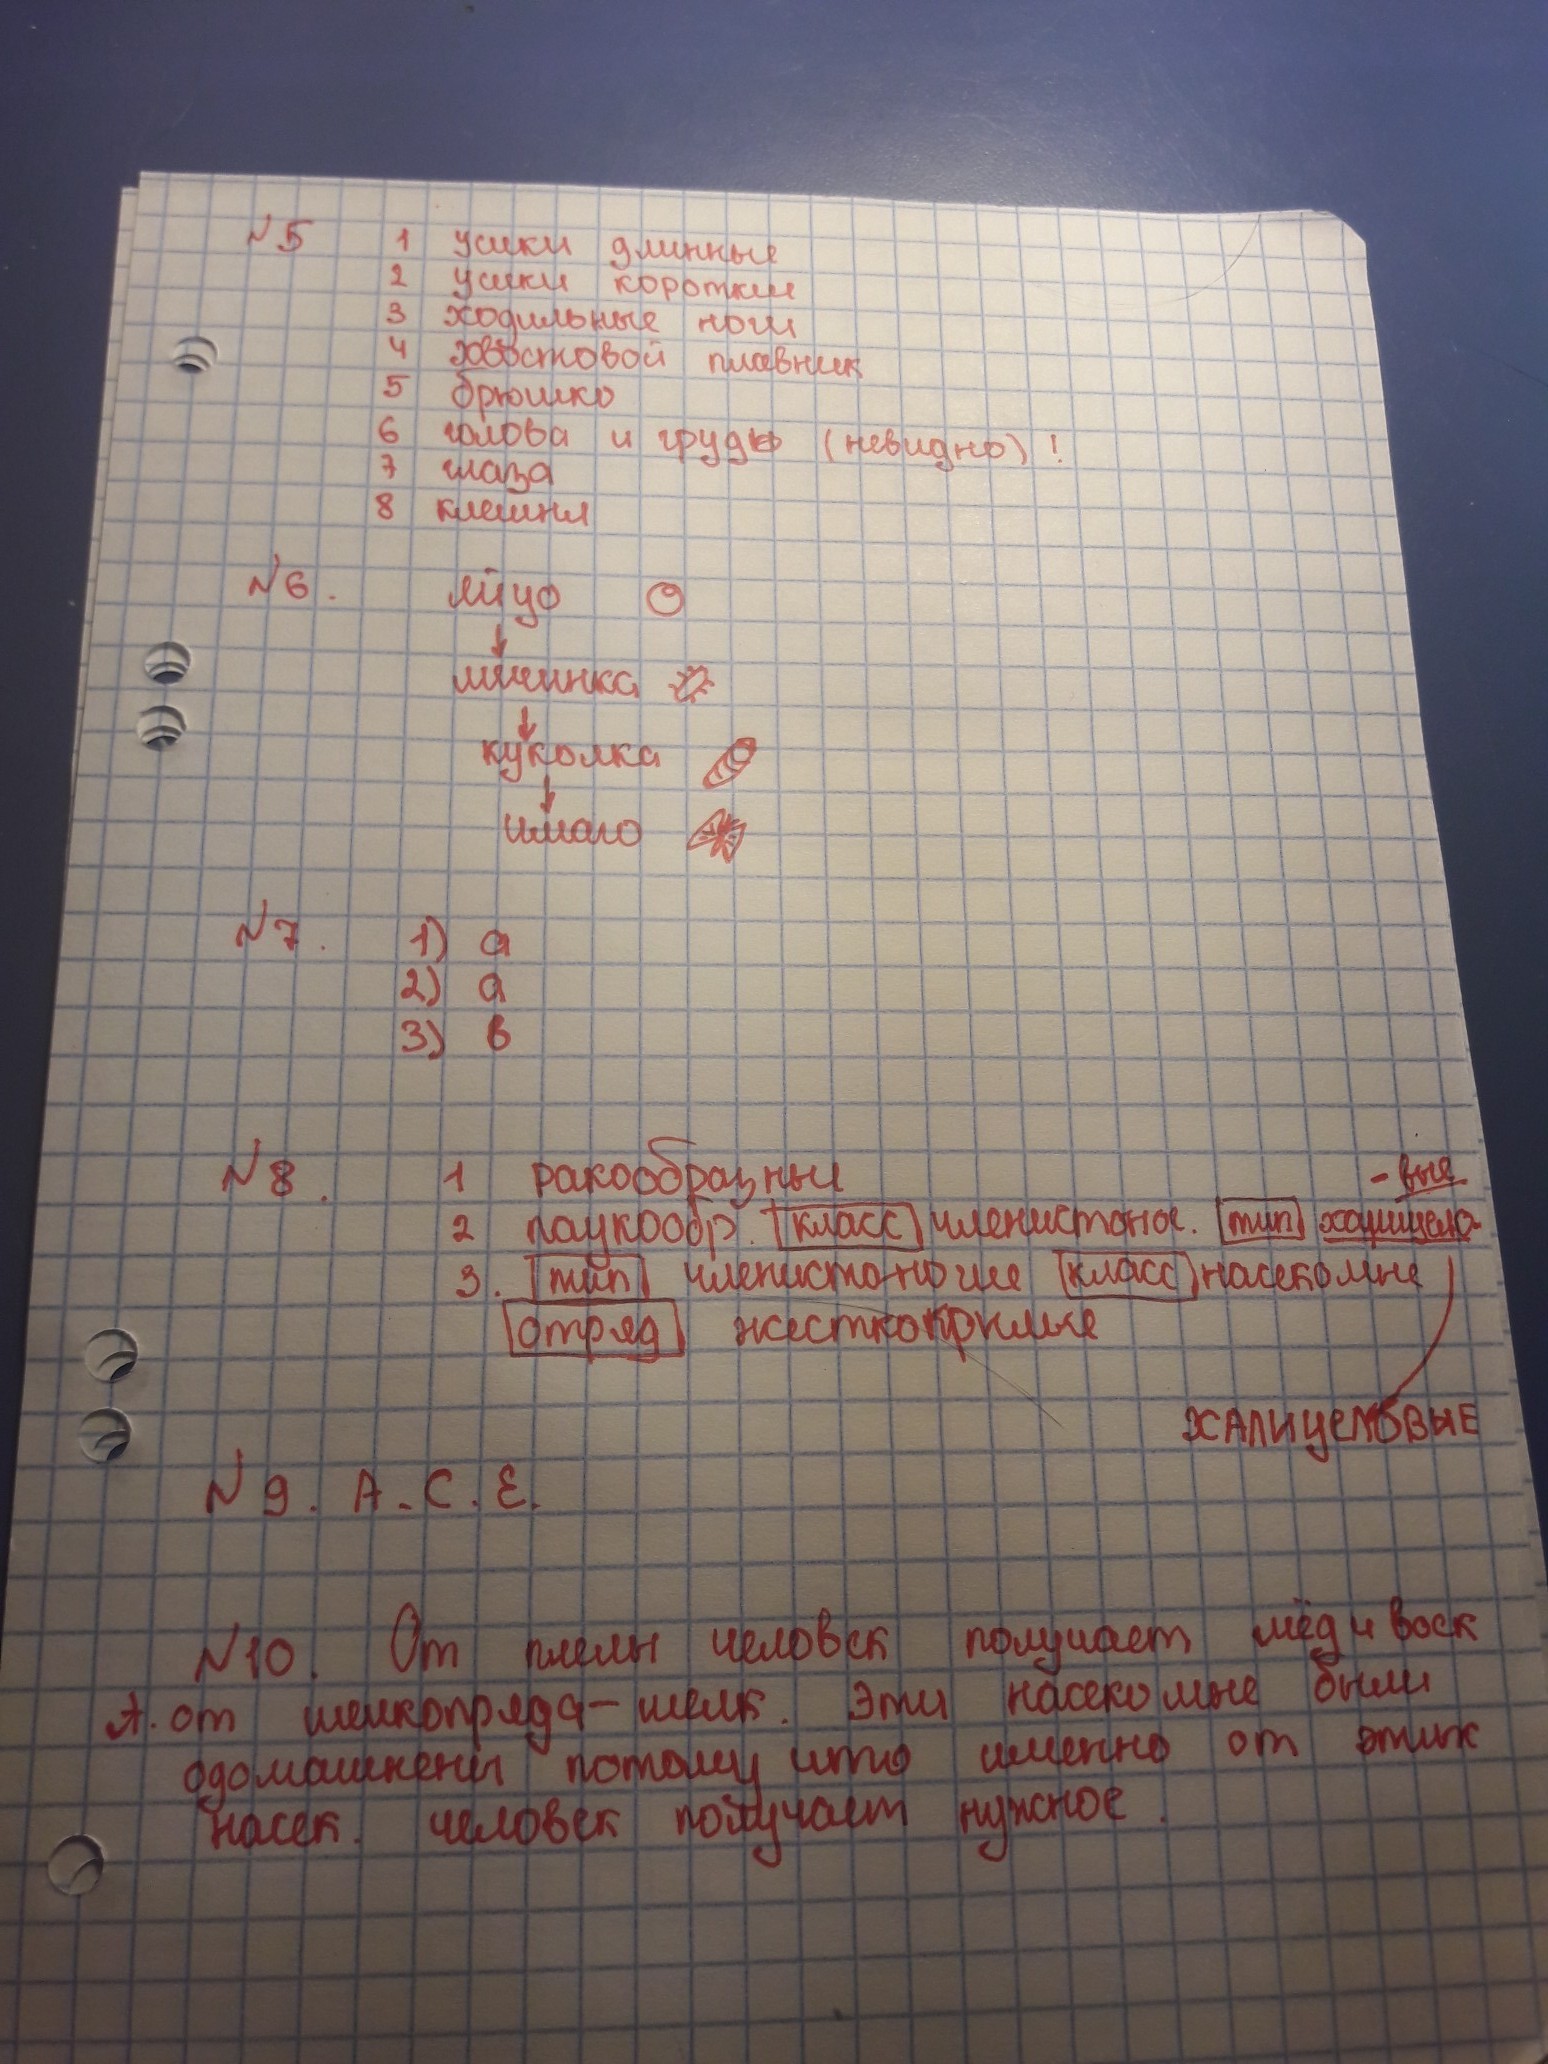 №5 1 усики длинные
2 усики короткие
3 ходильные ноги
4 хвостовой плавник
5 брюшко
6 голова и грудь (невидно)!
7 глаза
8 клешня
№6. яйцо
личинка
куколка
имаго
№7. 1) а
2) а
3) в
№8. 1 ракообразные -вые
2 паукообр. класс членистоног. тип халицело-
3. тип членистоногие класс насекомые
отряд жесткокрылые
ХАЛИЦЕЛОВЫЕ
№9. А. С. Е.
№10. От пчелы человек получает мёд и воск
А. от шелкопряда - шелк. Эти насекомые были
одомашнены потому что именно от этих
насек. человек получает нужное.